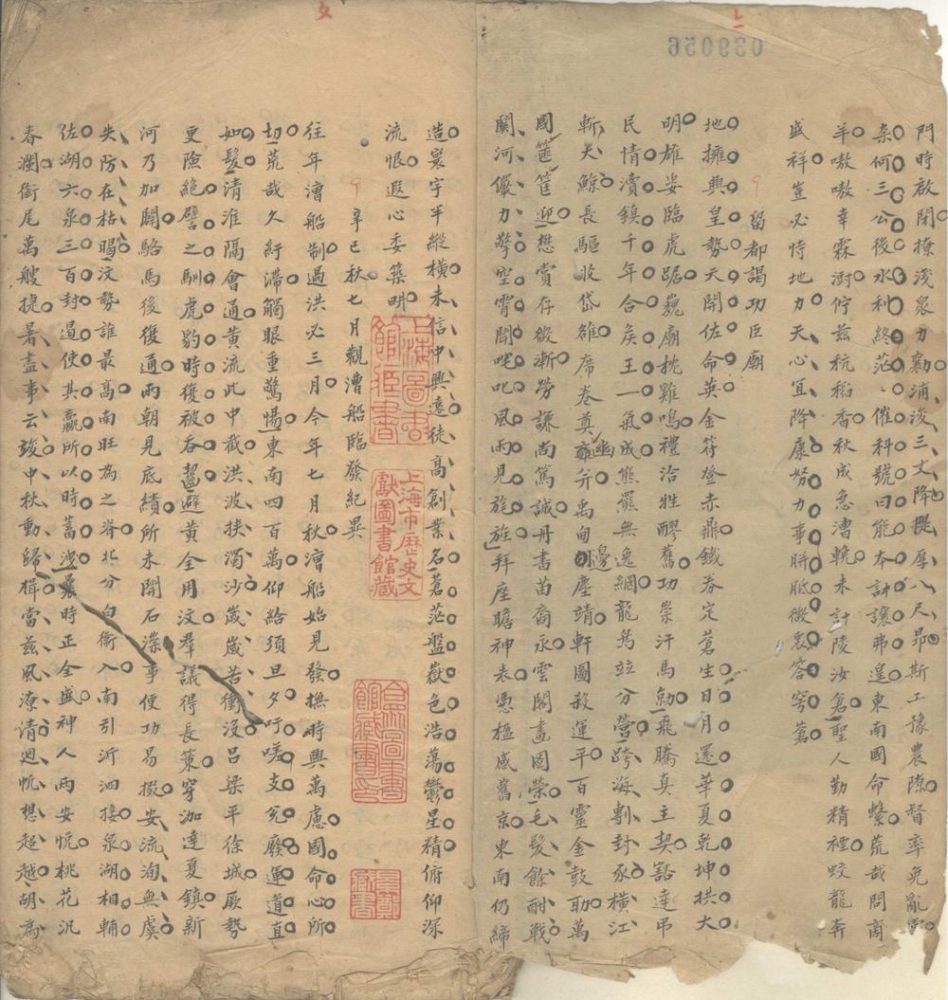 上
039056
門時啟閉撩淺衆力勷浦浚三丈降隄厚八尺昂斯工豫農隙督率免亂常
柰何三公後水利終茫催科號曰能本計讓弗遑東南國命繫荒哉問商
羊嗷嗷幸霖澍佇兹秔稻香秋成急漕輓未計陵汝倉聖人勤精禋蛟龍奔
盛祥豈必恃地力天心宜降康努力事胼胝微衷答穹蒼
留都謁功臣廟
地擁興皇勢天開佐命英金符登赤鼎鐵券定蒼生日月還華夏乾坤拱大
明雄婁臨虎踞巍廟枕雞鳴禮洽牲醪舊功崇汗馬勍飛騰真主契豁達弔
民情瀆鎮千年合矦王一氣成熊羆無逸網龍爲竝分營跨海剸封豕橫江
斬天鯨長驅收岱雒席卷奠幽并禹甸邊塵靖軒圖殺運平百靈金鼓助萬
國篚筐迎懋賞存殽漸勞謙尚篤誠丹書苗裔永雲閣畫圖榮毛髮餘酣戰
關河儼力擎空霄聞咤叱風雨見旌旌拜座瞻神表憑楹感舊京東南仍締
造寰宇半縱橫未信中興遠徒高創業名蒼茫盤嶽色浩蕩鬱星精俯仰深
流恨遐心委築明
辛巳秋七月觀漕船臨發紀異
往年漕船制過洪必三月今年七月秋漕船始見發撫時興萬慮國命心所
切荒哉久紆滯觸眼重驚惕東南四百萬仰給須旦夕吁嗟支兊廢運道直
如髮清淮隔會通黃流此中截洪波挾濁沙歲歲苦衝沒呂梁平徐城厥勢
更險絶譬之馴虎豹時復被吞齧避黃全用汶羣議得長策穿泇達夏鎮新
河乃加闢駱馬後復通兩朝見底績所未開石澡事便功易掇安流洵無虞
失防在枯暍汶勢誰最高南旺為之脊北分向衞入南引沂泗接泉湖相輔
佐湖六泉三百封逼使其贏所以時蓄洩曩時正全盛神人兩安恱桃花汎
春瀾銜尾萬艘捷暑盡事云竣中秋動歸楫當兹風潦清迥忱想超越胡爲
上海圖書館藏書
上海市歷史文獻圖書館藏
合眾圖書館藏書印